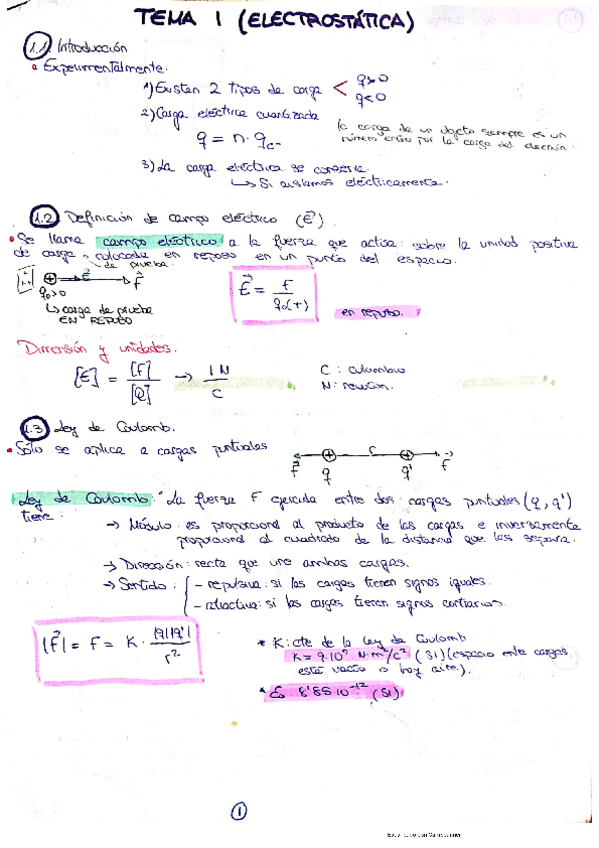 TEMA 1 (ELECTROSTÁTICA)
1.1 Introducción
• Experimentalmente:
1) Existen 2 tipos de carga < q>0
q<0
2) Carga eléctrica cuantizada
q = n · qe-
la carga de un objeto siempre es un
número entero por la carga del electrón.
3) La carga eléctrica se conserva.
↳ Si aislamos eléctricamente.
1.2 Definición de campo eléctrico (E⃗)
• Se llama campo eléctrico a la fuerza que actúa sobre la unidad positiva
de carga colocada en reposo en un punto del espacio.
de prueba.
E⃗ F⃗
q₀>0
↳ carga de prueba
EN REPOSO
E⃗ = F / q₀(+)
en reposo.
Dimensión y unidades.
[E] = [F] / [Q] → 1N / C
C : culombio
N: newton.
1.3 Ley de Coulomb.
• Sólo se aplica a cargas puntuales
F⃗ q r q' F⃗
Ley de Coulomb: "La fuerza F ejercida entre dos cargas puntuales (q, q')
tiene:
→ Módulo: es proporcional al producto de las cargas e inversamente
proporcional al cuadrado de la distancia que las separa.
→ Dirección: recta que une ambas cargas.
→ Sentido: - repulsiva: si las cargas tienen signos iguales.
- atractiva: si las cargas tienen signos contrarios.
|F⃗| = F = K · |q||q'| / r²
* K: cte de la Ley de Coulomb
K = 9·10⁹ N·m²/c² (SI) (espacio entre cargas
está vacío o hay aire).
* ε₀ 8'85·10⁻¹² (SI)
1